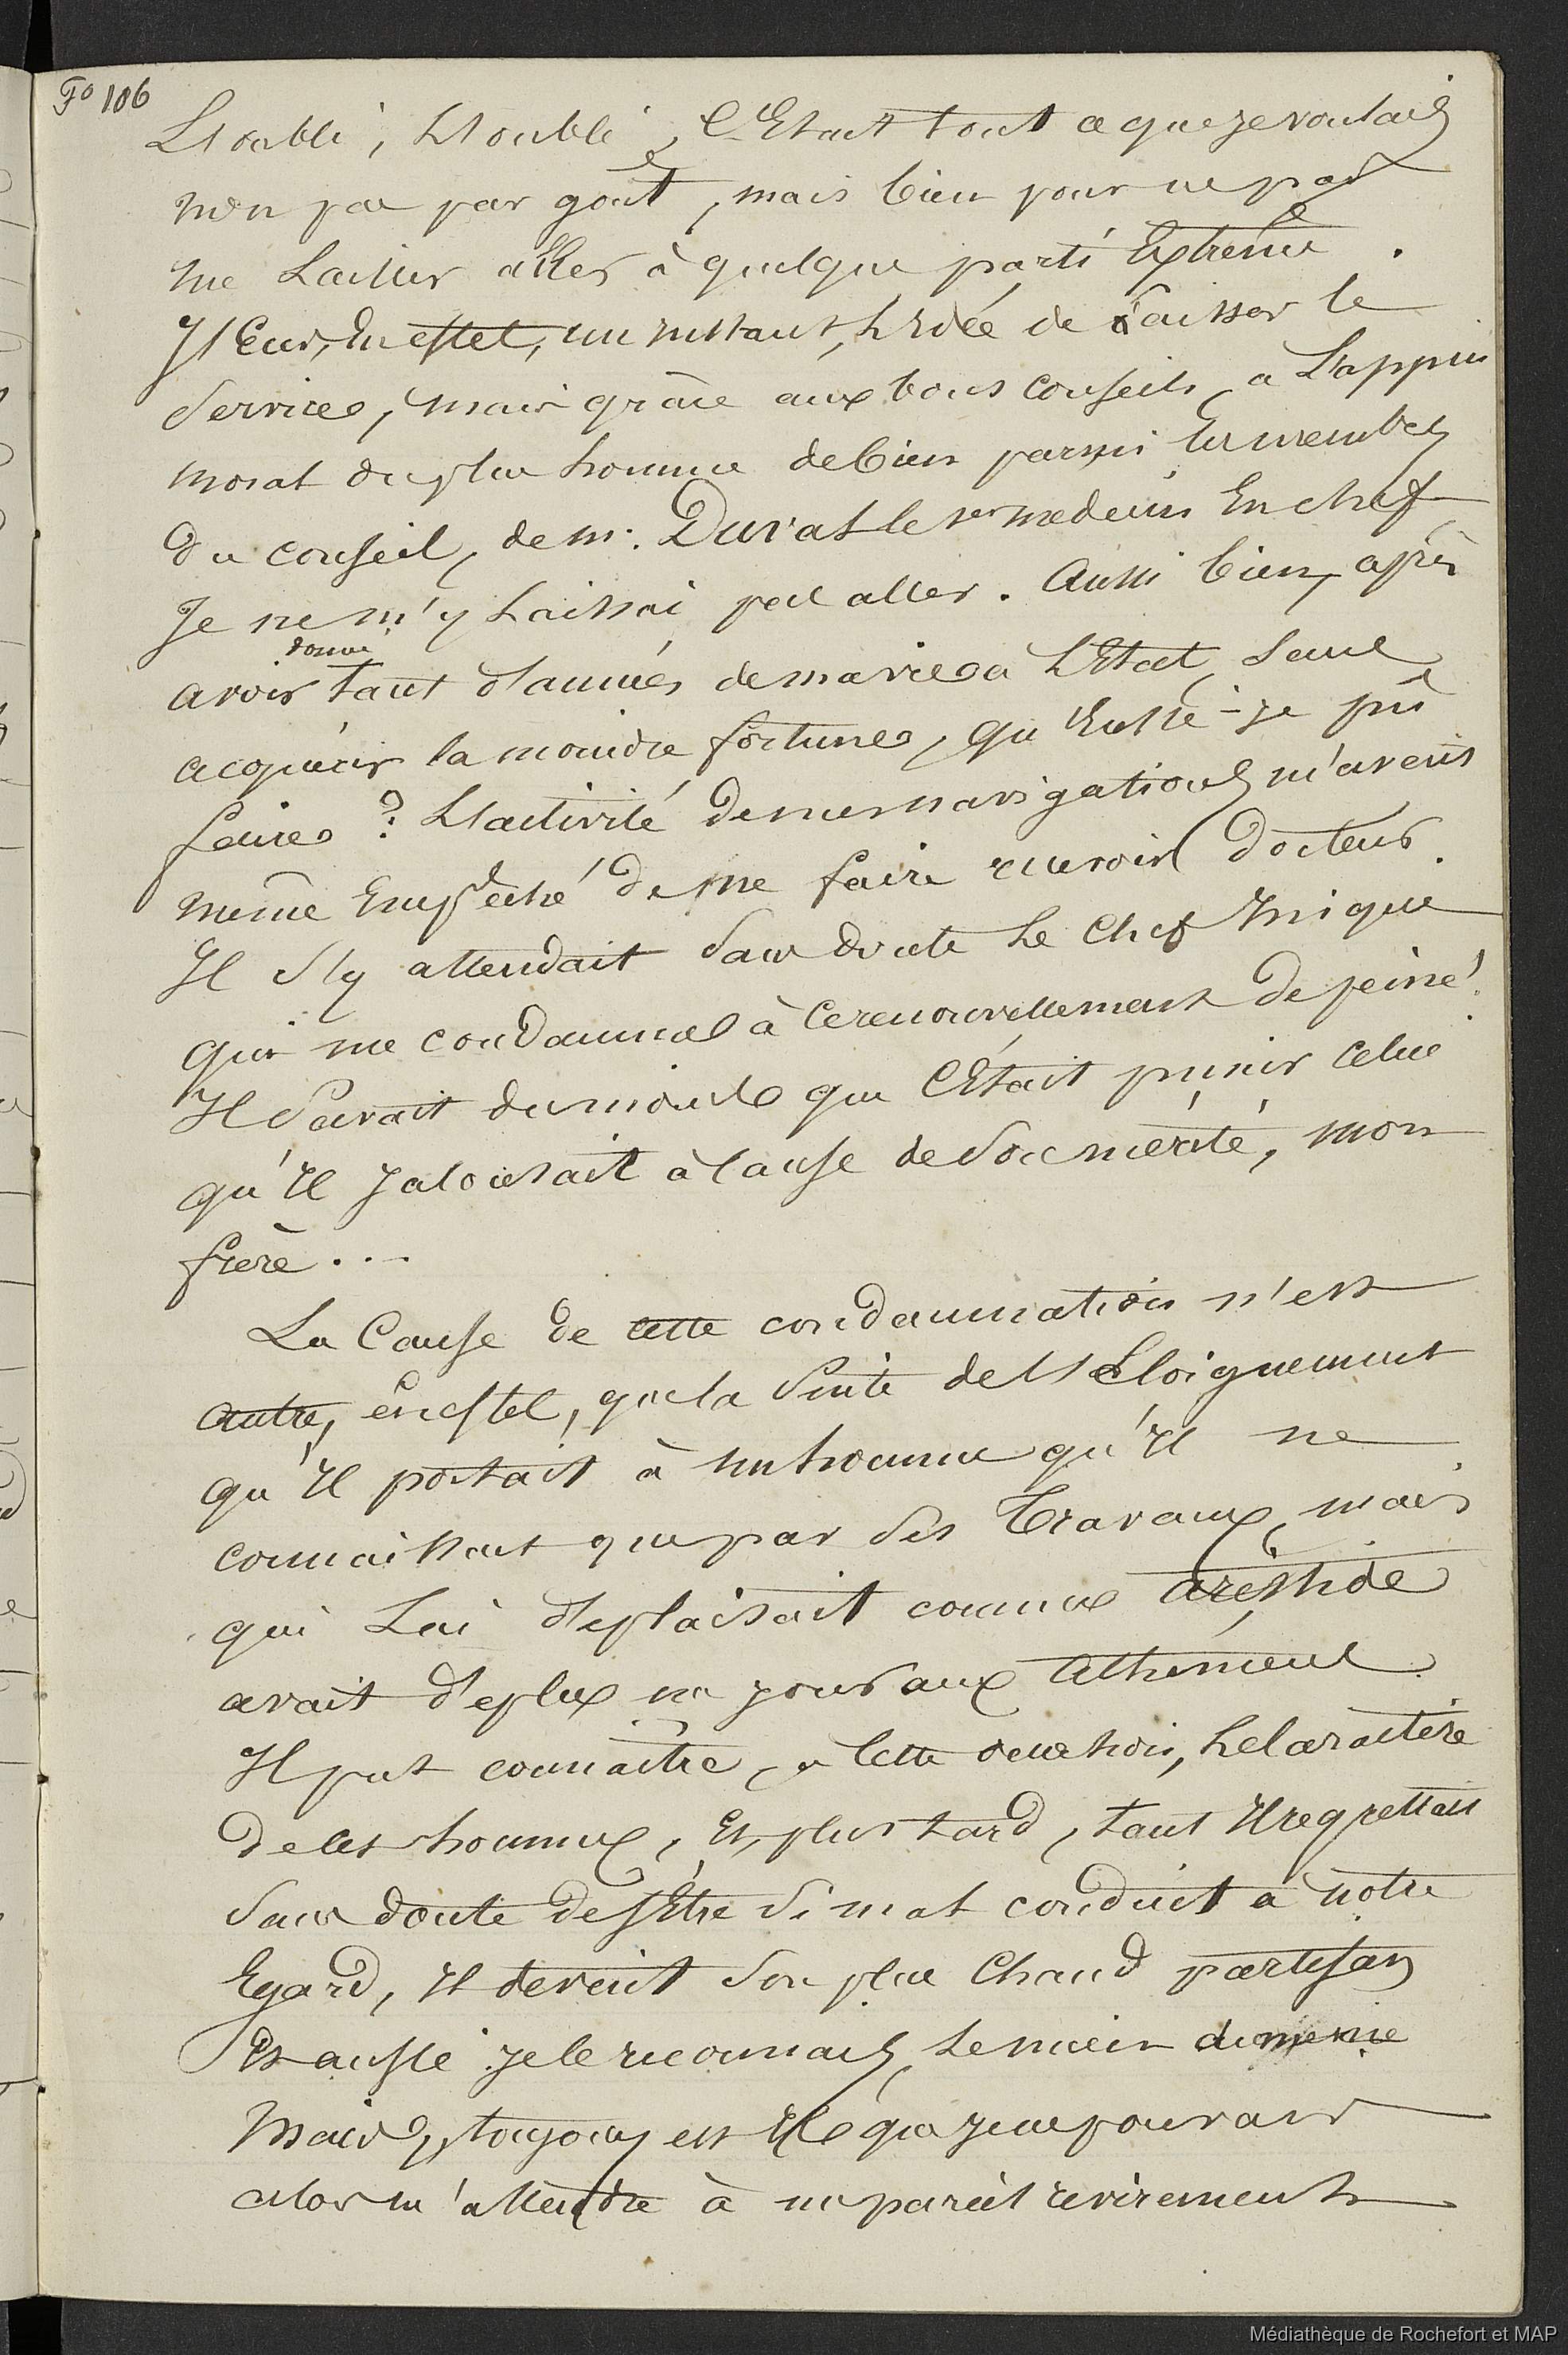 Fo 106
L'oubli, L'oubli, C'Etait tout ce que je voulais
non pas par goût, mais bien pour ne pas
me Laisser aller à quelque parti Extrême.
J'Eus, En effet, un instant, L'Idée de Laisser le
Service, mais grâce aux bons conseils, a L'appui
moral du plus homme de bien parmi les membres
du conseil, de mr. Duval le 1er médecin En chef
Je ne m'y Laissai pas aller. Aussi bien, après
donné
avoir tant d'années de ma vie à L'Etat, sans
acquérir la moindre fortune, qu'Eussé-je pû
faire? L'activité de mes navigations m'avait
même Empêché de me faire recevoir Docteur.
Il s'y attendait Sans doute Le Chef Inique
qui me condamna à ce renouvellement de peine!
Il Savait du moins que C'Etait punir celui
qu'Il Jalousait à Cause de Son mérite, mon
frère...
La Cause de cette condamnation n'est
autre, en effet, que la Suite de l'Eloignement
qu'Il portait à un homme qu'Il ne
connaissait que par Ses Travaux, mais
qui Lui déplaisait comme aristide
avait déplu un jour aux athéniens.
Il put connaitre, a Cette occasion, Le Caractère
de Ces hommes, Et, plus tard, tant Il regrettait
Sans doute de s'Etre Si mal conduit à notre
Egard, Il devint Son plus Chaud partisan
Et aussi je le reconnais, Le mien du même
Mais, toujours est Il que je ne pouvais
alors m'attendre à un pareil revirement
Médiathèque de Rochefort et MAP